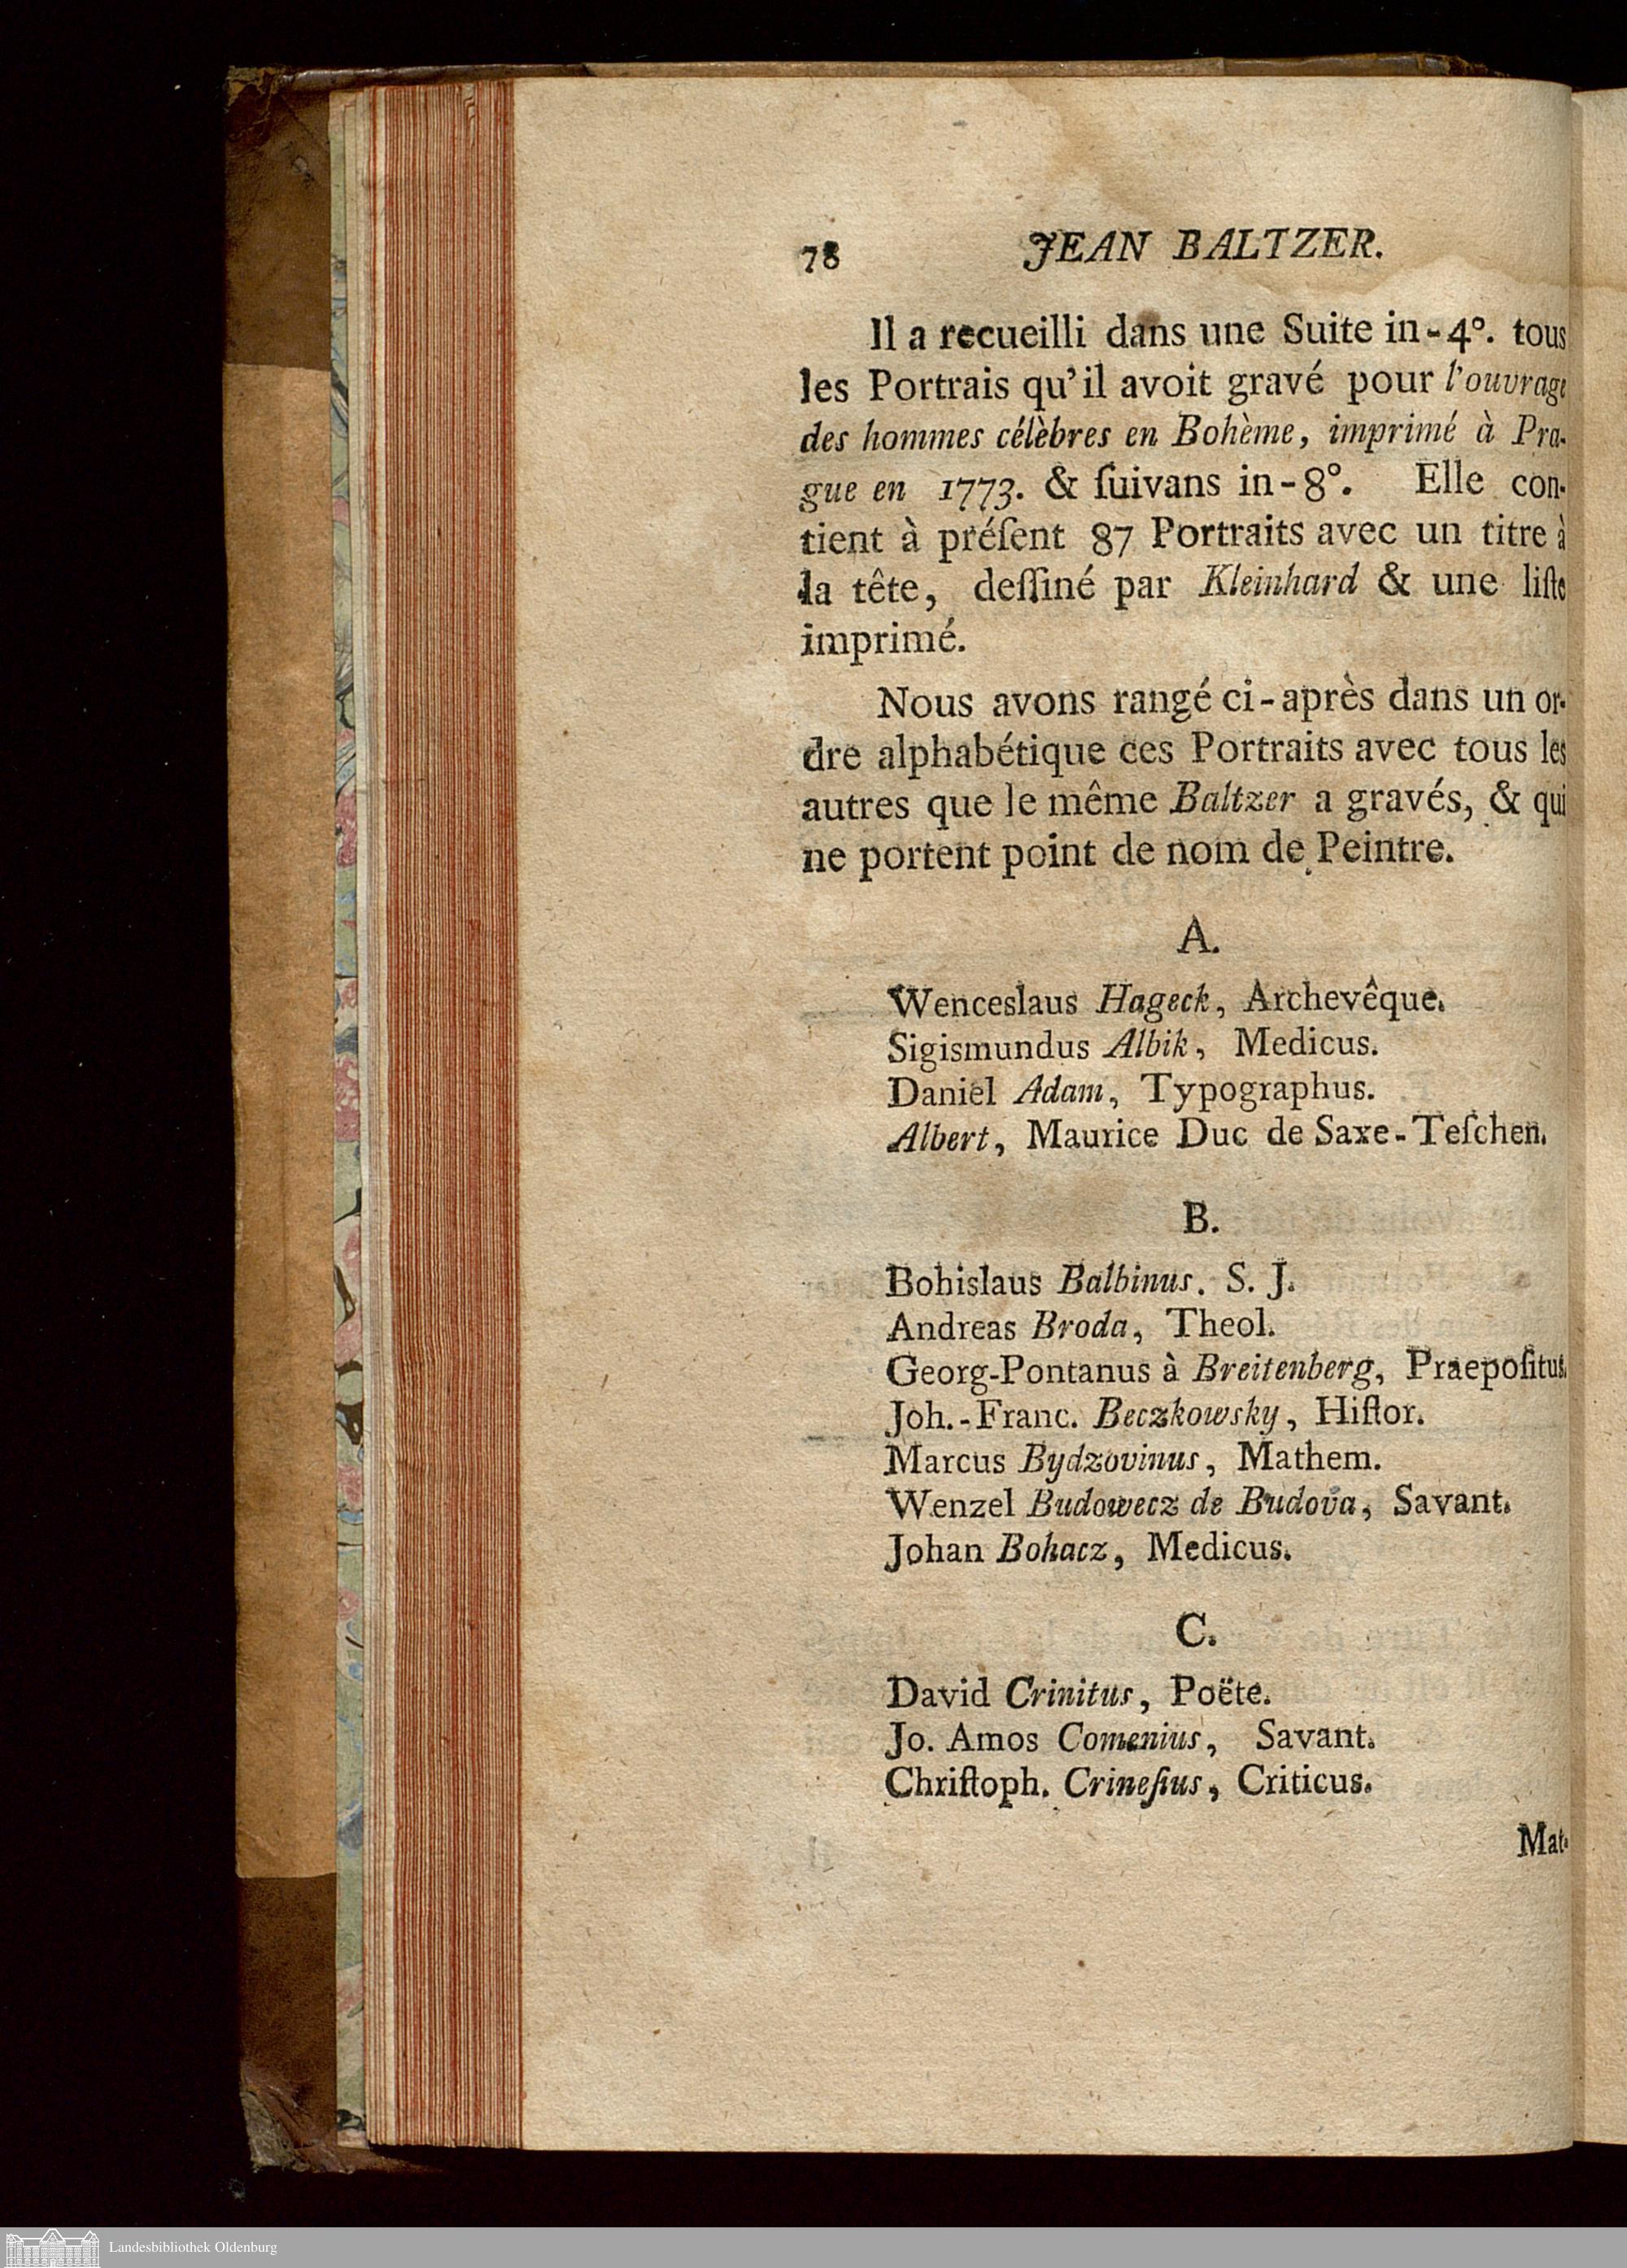 78 JEAN BALTZER.
Il a recueilli dans une Suite in-4°. tous
les Portrais qu'il avoit gravé pour l'ouvrage
des hommes célèbres en Bohème, imprimé à Pra-
gue en 1773. & ſuivans in-8°. Elle con-
tient à préſent 87 Portraits avec un titre à
la tête, deſſiné par Kleinhard & une liſte
imprimé.
Nous avons rangé ci-après dans un or-
dre alphabétique ces Portraits avec tous les
autres que le même Baltzer a gravés, & qui
ne portent point de nom de Peintre.
A.
Wenceslaus Hageck, Archevêque.
Sigismundus Albik, Medicus.
Daniel Adam, Typographus.
Albert, Maurice Duc de Saxe-Teſchen.
B.
Bohislaus Balbinus. S. J.
Andreas Broda, Theol.
Georg-Pontanus à Breitenberg, Praepoſitus.
Joh.-Franc. Beczkowsky, Hiſtor.
Marcus Bydzovinus, Mathem.
Wenzel Budowecz de Budova, Savant.
Johan Bohacz, Medicus.
C.
David Crinitus, Poëte.
Jo. Amos Comenius, Savant.
Chriſtoph. Crineſius, Criticus.
Mat-
Landesbibliothek Oldenburg